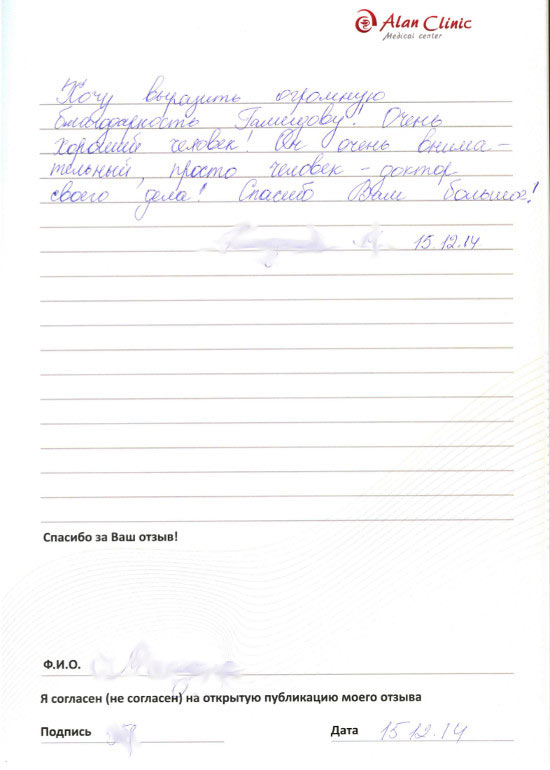 Alan Clinic
Medical center
Хочу выразить огромную
благодарность Гамидову! Очень
хороший человек! Он очень внима-
тельный, просто человек - доктор
своего дела! Спасибо Вам большое!
15.12.14
Спасибо за Ваш отзыв!
Ф.И.О.
Я согласен (не согласен) на открытую публикацию моего отзыва
Подпись Дата 15.12.14